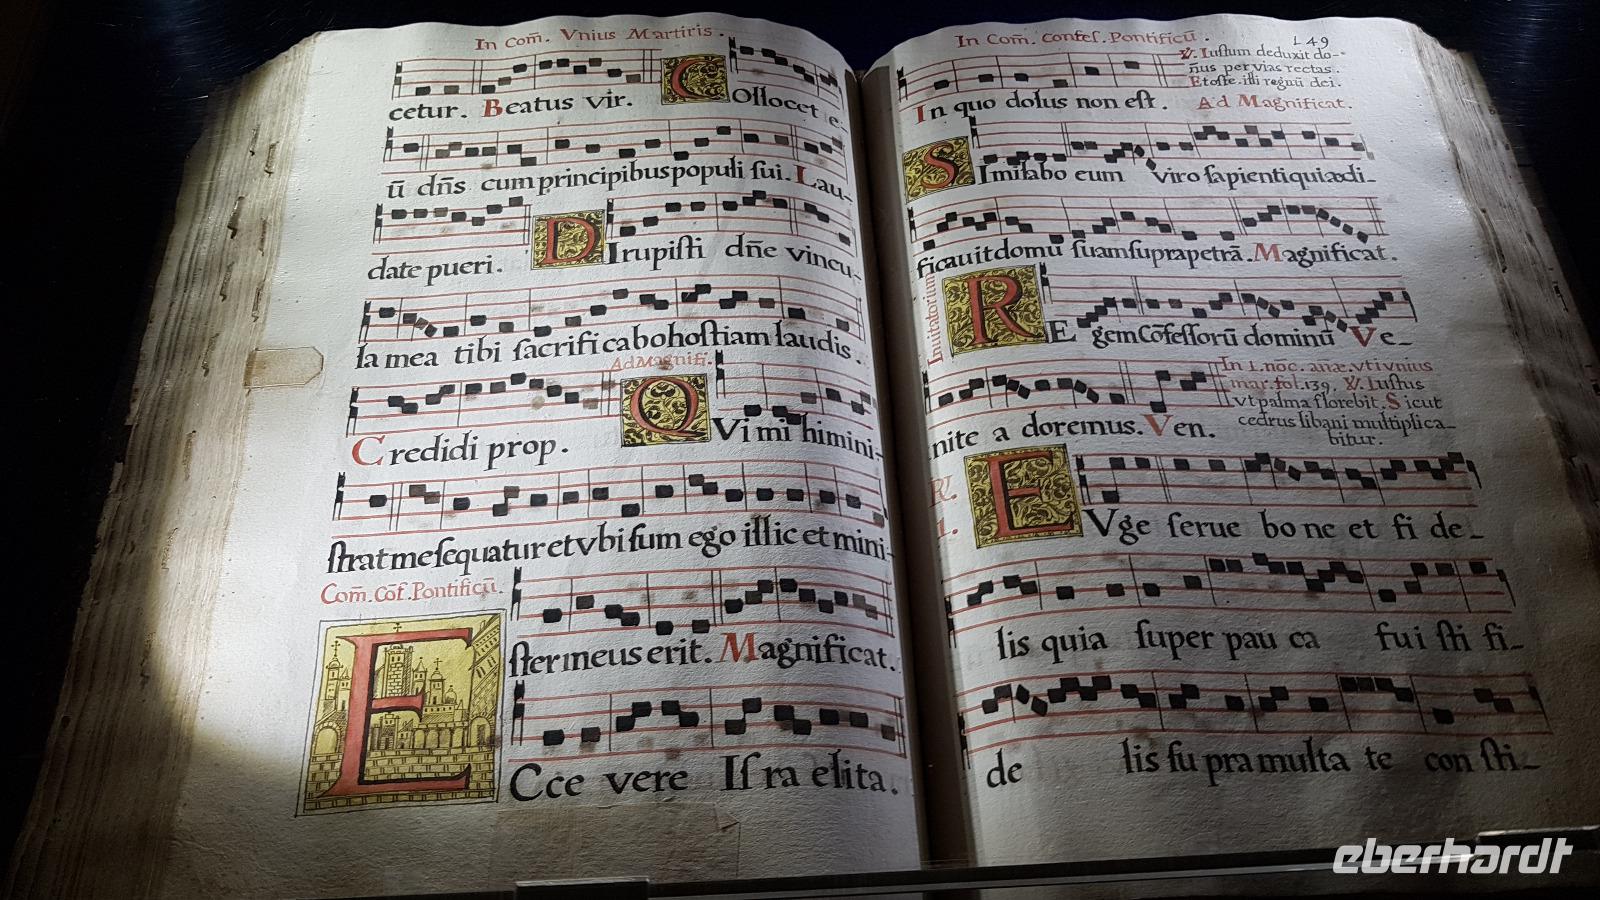 In Com̄. Vnius Martiris.
cetur. Beatus vir. COllocet e-
ū dn̄s cum principibus populi sui. Lau-
date pueri. DIrupisti dn̄e vincu-
la mea tibi sacrificabo hostiam laudis.
Ad Magnifi.
Credidi prop. QVi mi hi mini-
strat me sequatur et vbi sum ego illic et mini-
Com̄. cōf. Pontificū.
ster meus erit. Magnificat.
ECce vere Isra elita.
In Com̄. Confes. Pontificū.
149
℣. Iustum deduxit do-
n̄us per vias rectas.
Et oste. illi regnū dei.
In quo dolus non est. Ad Magnificat.
SImilabo eum viro sapienti qui ædi-
ficauit domū suam supra petrā. Magnificat.
Inuitatorium
REgem Cōfessorū dominū Ve-
In 1. noc. anæ. vt vnius
mar. fol. 139. ℣. Iustus
vt palma florebit. Sicut
cedrus libani multiplica-
bitur.
nite a doremus. Ven.
℟.
1.
EVge serue bo ne et fi de-
lis quia super pau ca fui sti fi-
de lis su pra multa te con sti-
eberhardt